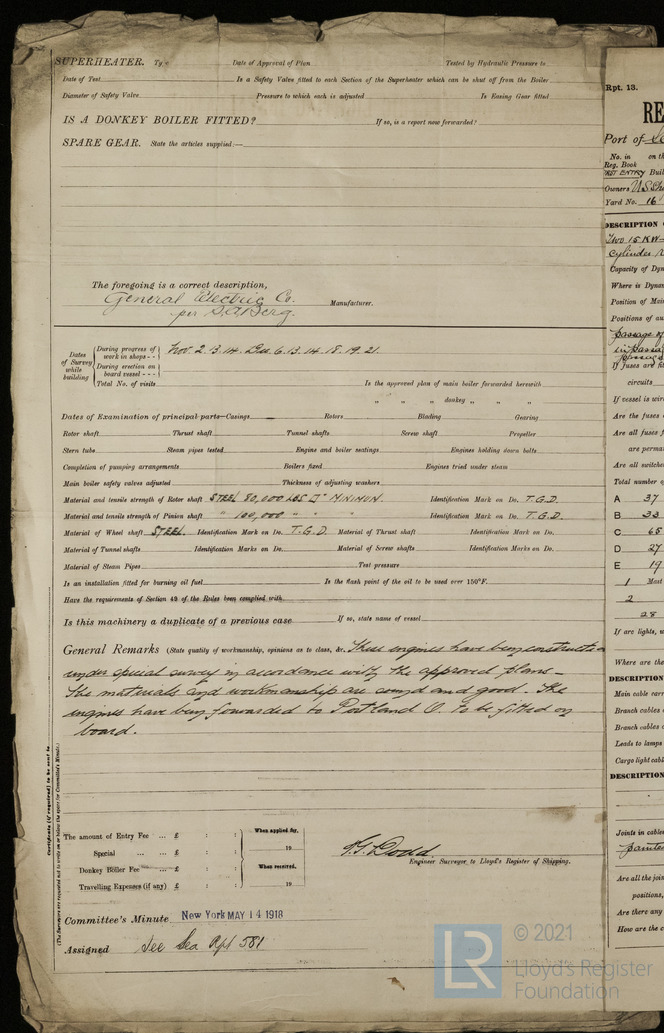 SUPERHEATER. Type Date of Approval of Plan Tested by Hydraulic Pressure to
Date of Test Is a Safety Valve fitted to each Section of the Superheater which can be shut off from the Boiler
Diameter of Safety Valve Pressure to which each is adjusted Is Easing Gear fitted
IS A DONKEY BOILER FITTED? If so, is a report now forwarded?
SPARE GEAR. State the articles supplied:—
The foregoing is a correct description,
General Electric Co. Manufacturer.
per S.A. Berg.
Dates of Survey while building
During progress of work in shops - - Nov 2. 13. 14. Dec 6. 13. 14. 18. 19. 21.
During erection on board vessel - - -
Total No. of visits Is the approved plan of main boiler forwarded herewith
" " " donkey " " "
Dates of Examination of principal parts—Casings Rotors Blading Gearing
Rotor shaft Thrust shaft Tunnel shafts Screw shaft Propeller
Stern tube Steam pipes tested Engine and boiler seatings Engines holding down bolts
Completion of pumping arrangements Boilers fixed Engines tried under steam
Main boiler safety valves adjusted Thickness of adjusting washers
Material and tensile strength of Rotor shaft STEEL 80,000 LBS □" MINIMUM. Identification Mark on Do. T.G.D.
Material and tensile strength of Pinion shaft " 100,000 " " " Identification Mark on Do. T.G.D.
Material of Wheel shaft STEEL. Identification Mark on Do. T.G.D. Material of Thrust shaft Identification Mark on Do.
Material of Tunnel shafts Identification Marks on Do. Material of Screw shafts Identification Marks on Do.
Material of Steam Pipes Test pressure
Is an installation fitted for burning oil fuel Is the flash point of the oil to be used over 150°F.
Have the requirements of Section 49 of the Rules been complied with
Is this machinery a duplicate of a previous case If so, state name of vessel
General Remarks (State quality of workmanship, opinions as to class, &c. These engines have been constructed
under special survey in accordance with the approved plans—
The materials and workmanship are sound and good. The
engines have been forwarded to Portland O. to be fitted on
board.
Certificate (if required) to be sent to
(The Surveyors are requested not to write on or below the space for Committee's Minute.)
The amount of Entry Fee ... £ : : When applied for,
Special ... ... £ : : 19
Donkey Boiler Fee ... £ : : When received,
Travelling Expenses (if any) £ : : 19
T.G. Dodd.
Engineer Surveyor to Lloyd's Register of Shipping.
Committee's Minute New York MAY 14 1918
Assigned See Sea Rpt 581
© 2021
Lloyd's Register
Foundation
LR
Rpt. 13.
RE
Port of
No. in on th
Reg. Book
FIRST ENTRY Buil
Owners U.S. Sh
Yard No. 16
DESCRIPTION
Two 15 KW
cylinder
Capacity of Dyn
Where is Dynam
Position of Mai
Positions of au
passage of
If fuses are fit
circuits
If vessel is wir
Are the fuses
Are all fuses f
are perma
Are all switche
Total number o
A 37
B 33
C 65
D 27
E 19
1 Mast
2
28
If arc lights, w
Where are the
DESCRIPTION
Main cable carr
Branch cables
Branch cables
Leads to lamps
Cargo light cabl
DESCRIPTION
Joints in cables
painted
Are all the join
positions,
Are there any
How are the c